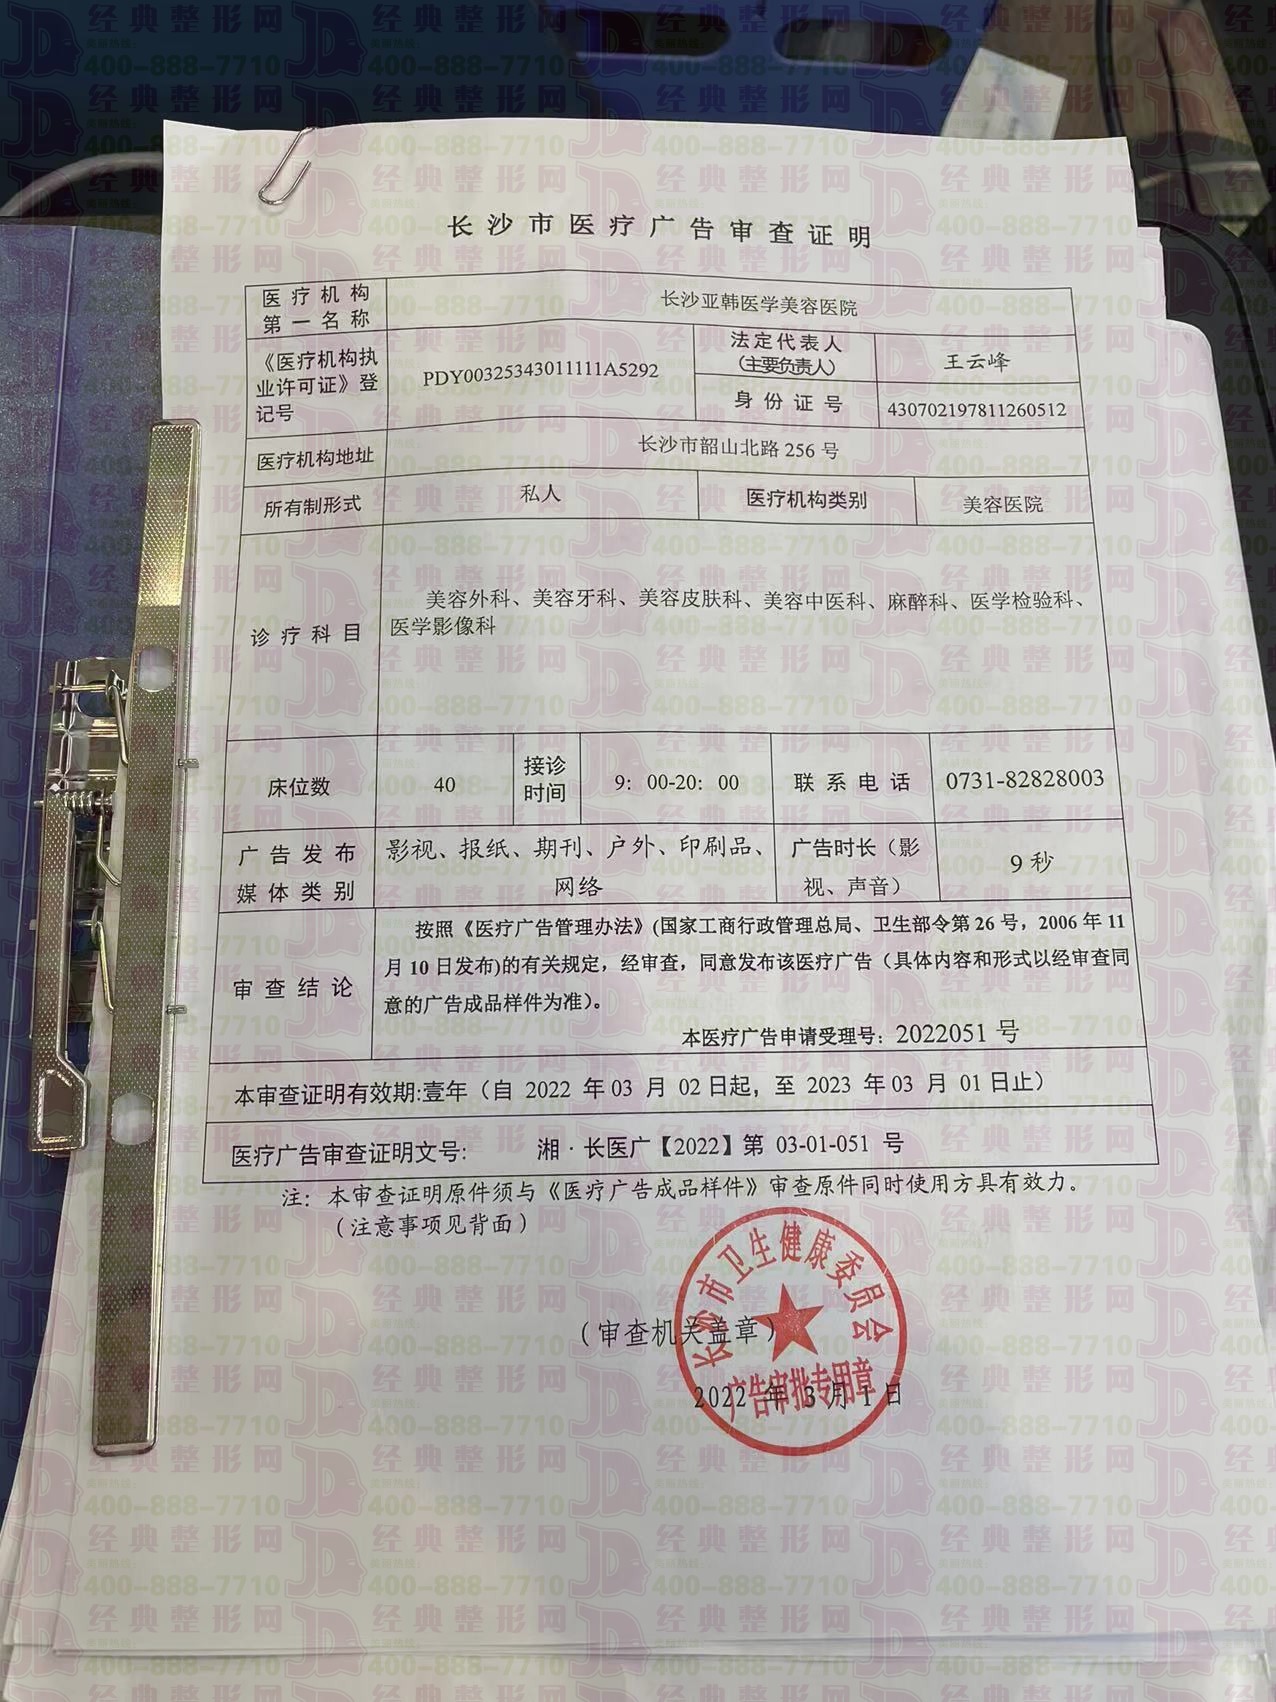 长沙市医疗广告审查证明
医疗机构
第一名称
长沙亚韩医学美容医院
《医疗机构执
业许可证》登
记号
PDY00325343011111A5292
法定代表人
(主要负责人)
王云峰
身份证号
430702197811260512
医疗机构地址
长沙市韶山北路256号
所有制形式
私人
医疗机构类别
美容医院
诊疗科目
美容外科、美容牙科、美容皮肤科、美容中医科、麻醉科、医学检验科、
医学影像科
床位数
40
接诊
时间
9：00-20：00
联系电话
0731-82828003
广告发布
媒体类别
影视、报纸、期刊、户外、印刷品、
网络
广告时长（影
视、声音）
9秒
审查结论
按照《医疗广告管理办法》(国家工商行政管理总局、卫生部令第26号，2006年11
月10日发布)的有关规定，经审查，同意发布该医疗广告（具体内容和形式以经审查同
意的广告成品样件为准）。
本医疗广告申请受理号：2022051号
本审查证明有效期:壹年（自 2022 年03 月 02日起，至 2023 年03 月 01日止）
医疗广告审查证明文号: 湘·长医广【2022】第 03-01-051 号
注：本审查证明原件须与《医疗广告成品样件》审查原件同时使用方具有效力。
（注意事项见背面）
（审查机关盖章）
2022 年 3月 1 日
长沙市卫生健康委员会
广告审批专用章
经典整形网
400-888-7710